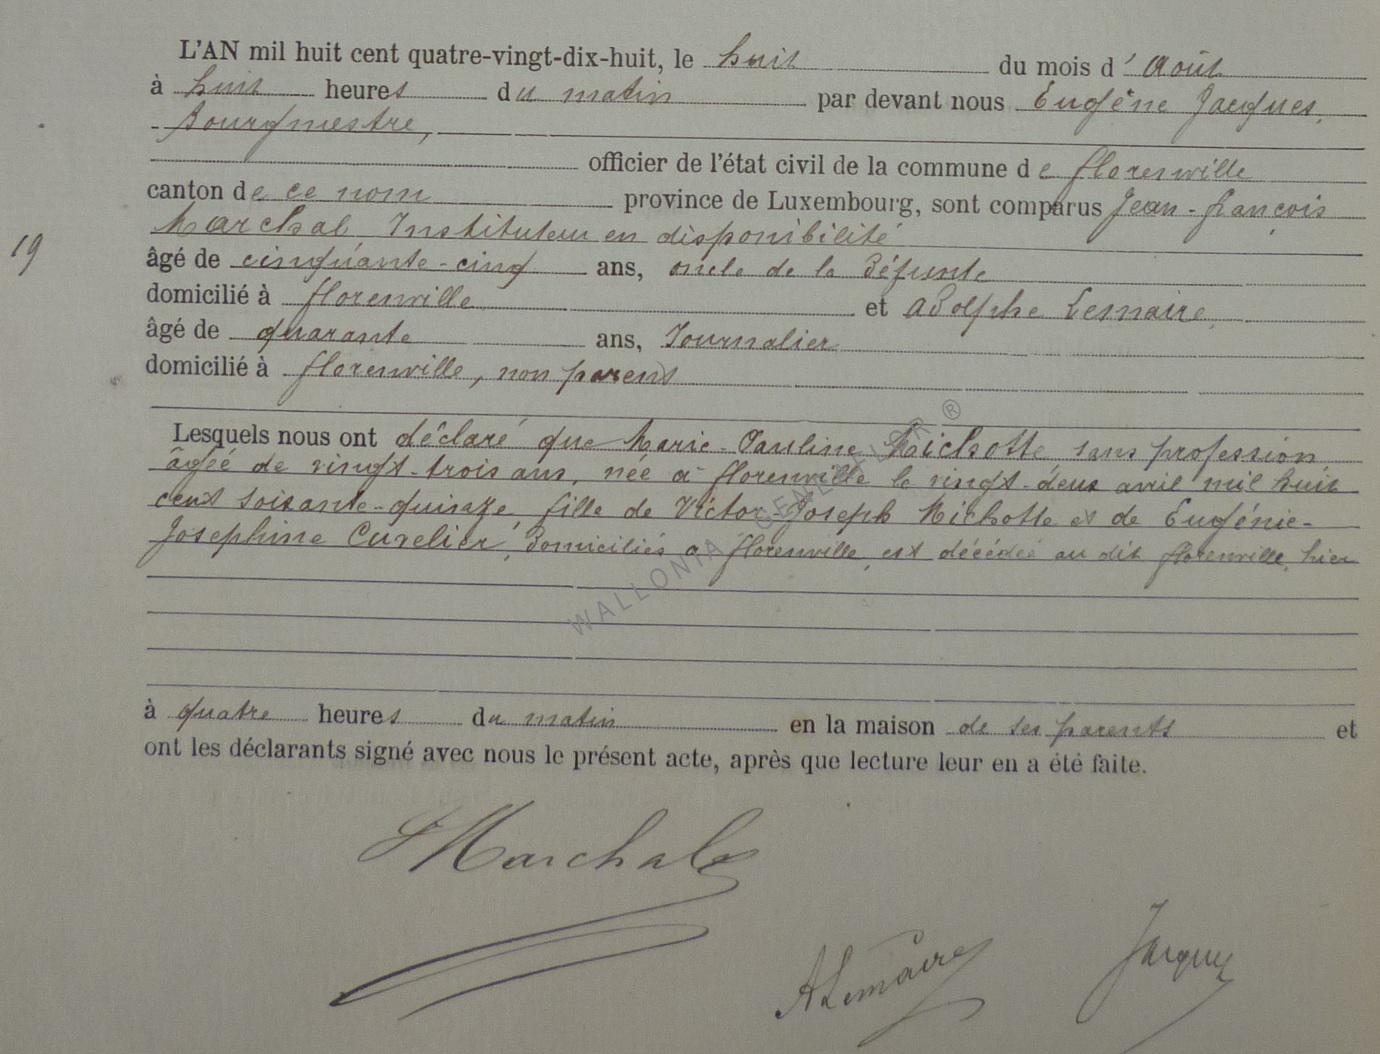 L'AN mil huit cent quatre-vingt-dix-huit, le huit du mois d'Août
à huit heures du matin par devant nous Eugène Jacques,
Bourgmestre,
officier de l'état civil de la commune de Florenville
canton de ce nom province de Luxembourg, sont comparus Jean-François
Marchal Instituteur en disponibilité
19
âgé de cinquante-cinq ans, oncle de la défunte
domicilié à Florenville et Adolphe Lemaire
âgé de quarante ans, Journalier
domicilié à Florenville, non parent
Lesquels nous ont déclaré que Marie-Pauline Michotte sans profession
âgée de vingt-trois ans, née à Florenville le vingt-deux avril mil huit
cent soixante-quinze fille de Victor Joseph Michotte et de Eugénie-
Josephine Cuvelier, domiciliés à Florenville, est décédée au dit Florenville, hier
WALLONIA ®
à quatre heures du matin en la maison de ses parents et
ont les déclarants signé avec nous le présent acte, après que lecture leur en a été faite.
Marchal
ALemaire
Jacques